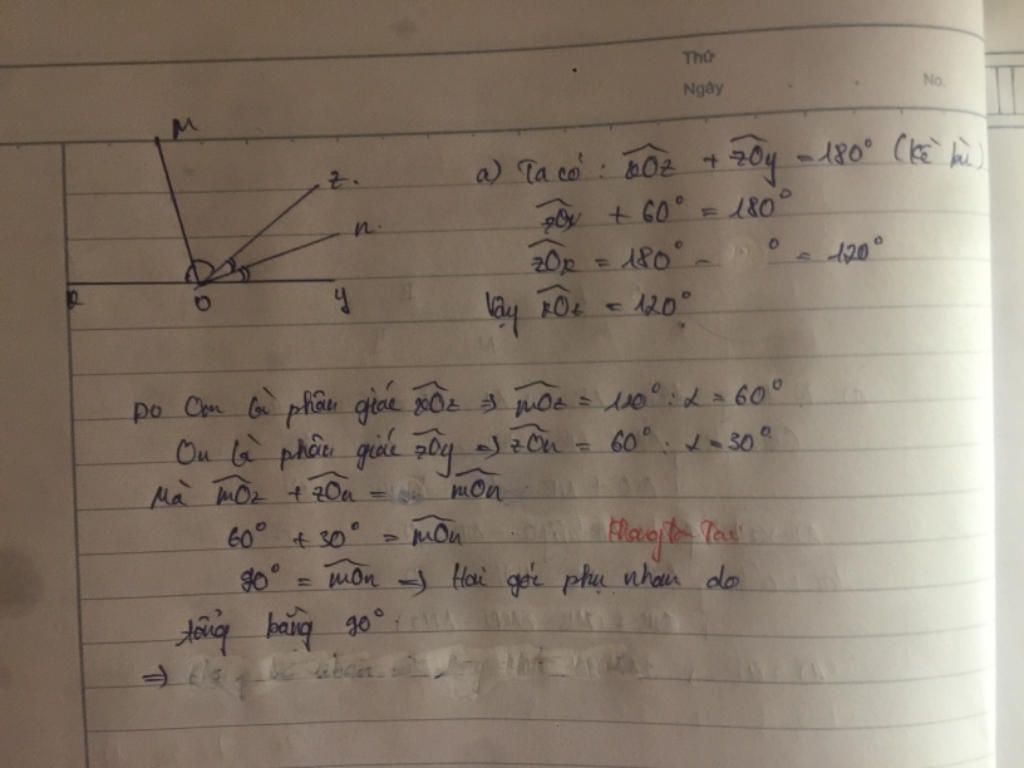 Thứ
Ngày
No.
M
z.
n.
x
O
y
a) Ta có : xOz + zOy = 180° (kề bù)
zOx + 60° = 180°
zOx = 180° - ° = 120°
Vậy xOz = 120°
Do Om là phân giác xOz => mOz = 120° : 2 = 60°
On là phân giác zOy => zOn = 60° : 2 = 30°
Mà mOz + zOn = mOn
60° + 30° = mOn
90° = mOn => Hai góc phụ nhau do
tổng bằng 90°.
=>